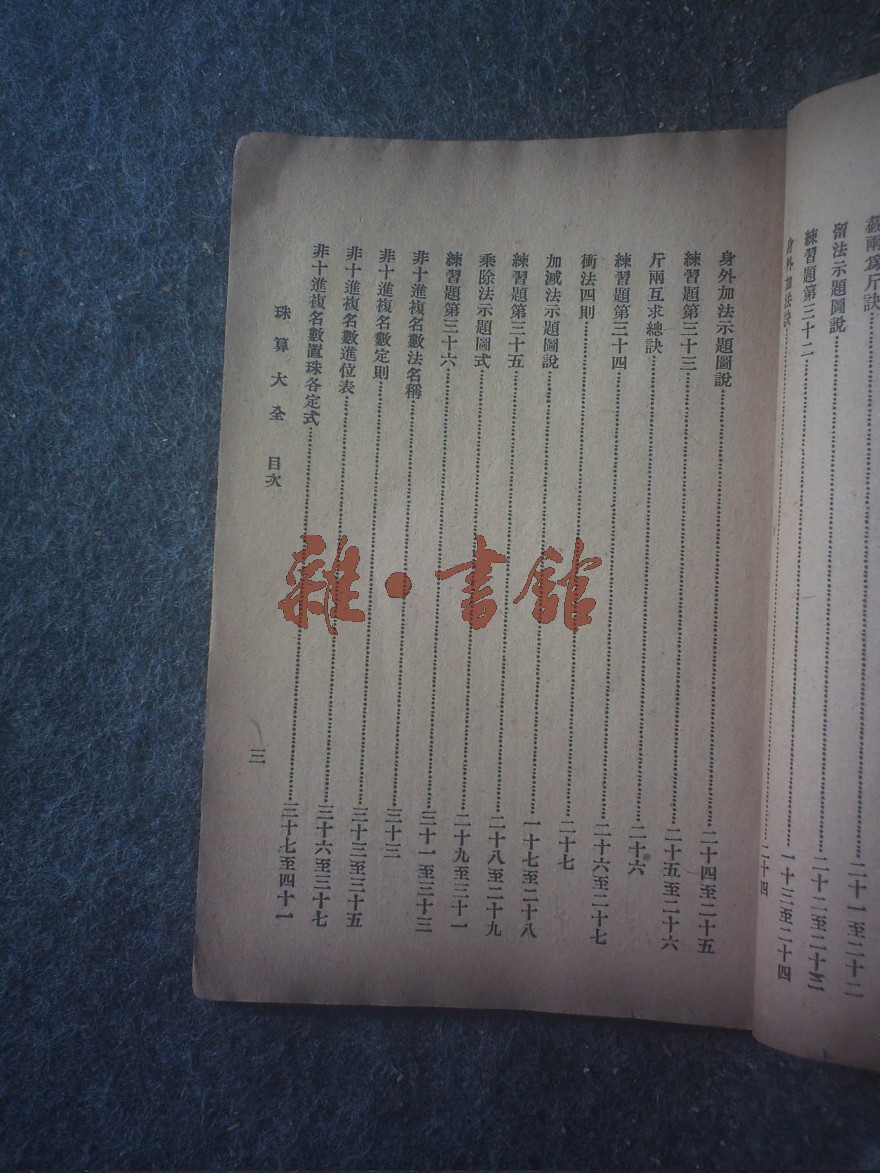 截兩爲斤訣……二十一至二十二
留法示題圖說……二十二至二十三
練習題第三十二……一十三至二十四
身外加法訣……二十四
身外加法示題圖說……二十四至二十五
練習題第三十三……二十五至二十六
斤兩互求總訣……二十六
練習題第三十四……二十六至二十七
衝法四則……二十七
加減法示題圖說……一十七至二十八
練習題第三十五……二十八至二十九
乘除法示題圖式……二十九至三十一
練習題第三十六……三十一至三十三
非十進複名數法名稱……三十三
非十進複名數定則……三十三至三十五
非十進複名數進位表……三十六至三十七
非十進複名數置珠各定式……三十七至四十一
珠算大全 目次
三
雜·書館